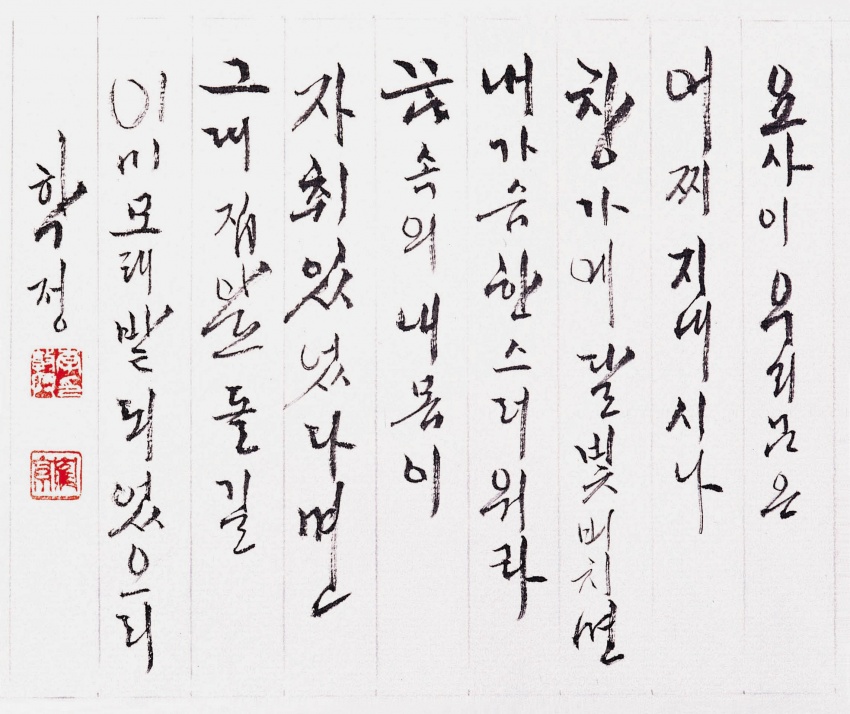 요사이 우리 님은
어찌 지내시나
창가에 달빛 비치면
내 가슴 한스러워라
꿈속의 내 몸이
자취 있었다면
그대 집 앞 돌길
이미 모래밭 되었으리
학정